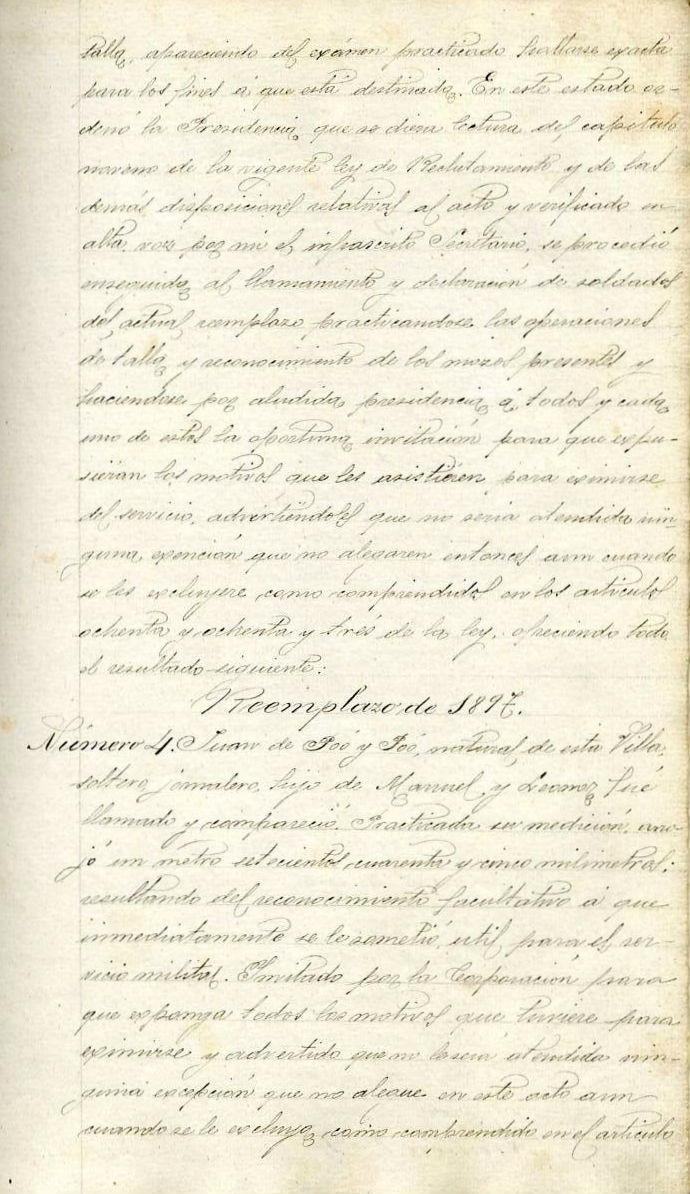 talla, apareciendo del exámen practicado hallarse exacta
para los fines á que está destinada. En este estado or-
denó la Presidencia que se diera lectura del capitulo
noveno de la vigente ley de Reclutamiento y de las
demás disposiciones relativas al acto y verificado en
alta voz por mi el infrascrito Secretario, se procedió
enseguida al llamamiento y declaración de soldados
del actual reemplazo practicandose las operaciones
de talla y reconocimiento de los mozos presentes y
haciendose por aludida presidencia á todos y cada
uno de estos la oportuna invitación para que expu-
sieran los motivos que les asistieren para eximirse
del servicio, advertiendoles que no seria atendida nin-
guna exención que no alegaren entonces aun cuando
se les excluyere como comprendidos en los articulos
ochenta y ochenta y trés de la ley, ofreciendo todo
el resultado siguiente:
Reemplazo de 1897.
Número 4. Juan de Poó y Poó, natural de esta Villa,
soltero, jornalero, hijo de Manuel y Leonor fué
llamado y compareció. Practicada su medición, arro-
jó un metro setecientos cuarenta y cinco milimetros;
resultando del reconocimiento facultativo á que
inmediatamente se le sometió, util para el ser-
vicio militar. Invitado por la Corporación para
que exponga todos los motivos que tuviere para
eximirse y advertido que no le será atendida nin-
guna excepción que no alegue en este acto aun
cuando se le excluya como comprendido en el articulo